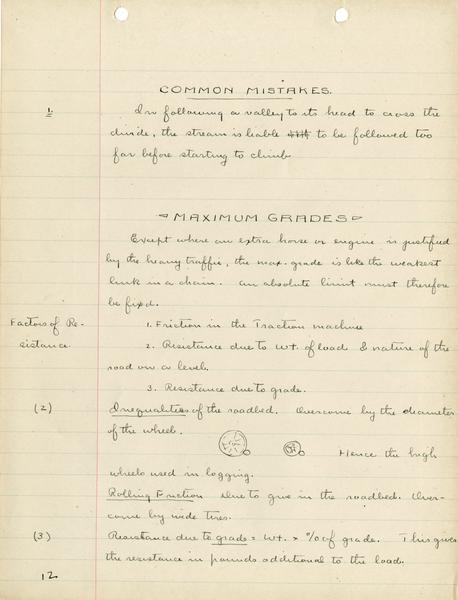 COMMON MISTAKES.
1. In following a valley to its head to cross the
divide, the stream is liable to be followed too
far before starting to climb
MAXIMUM GRADES
Except where an extra horse or engine is justified
by the heavy traffic, the max. grade is like the weakest
link in a chain. An absolute limit must therefore
be fixed.
Factors of Re-
sistance.
1. Friction in the Traction machine
2. Resistance due to wt. of load & nature of the
road on a level.
3. Resistance due to grade.
(2) Inequalities of the roadbed. Overcome by the diameter
of the wheel.
Hence the high
wheels used in logging.
Rolling Friction Due to give in the roadbed. Over-
come by wide tires.
(3) Resistance due to grade = wt. x % of grade. This gives
the resistance in pounds additional to the load.
12